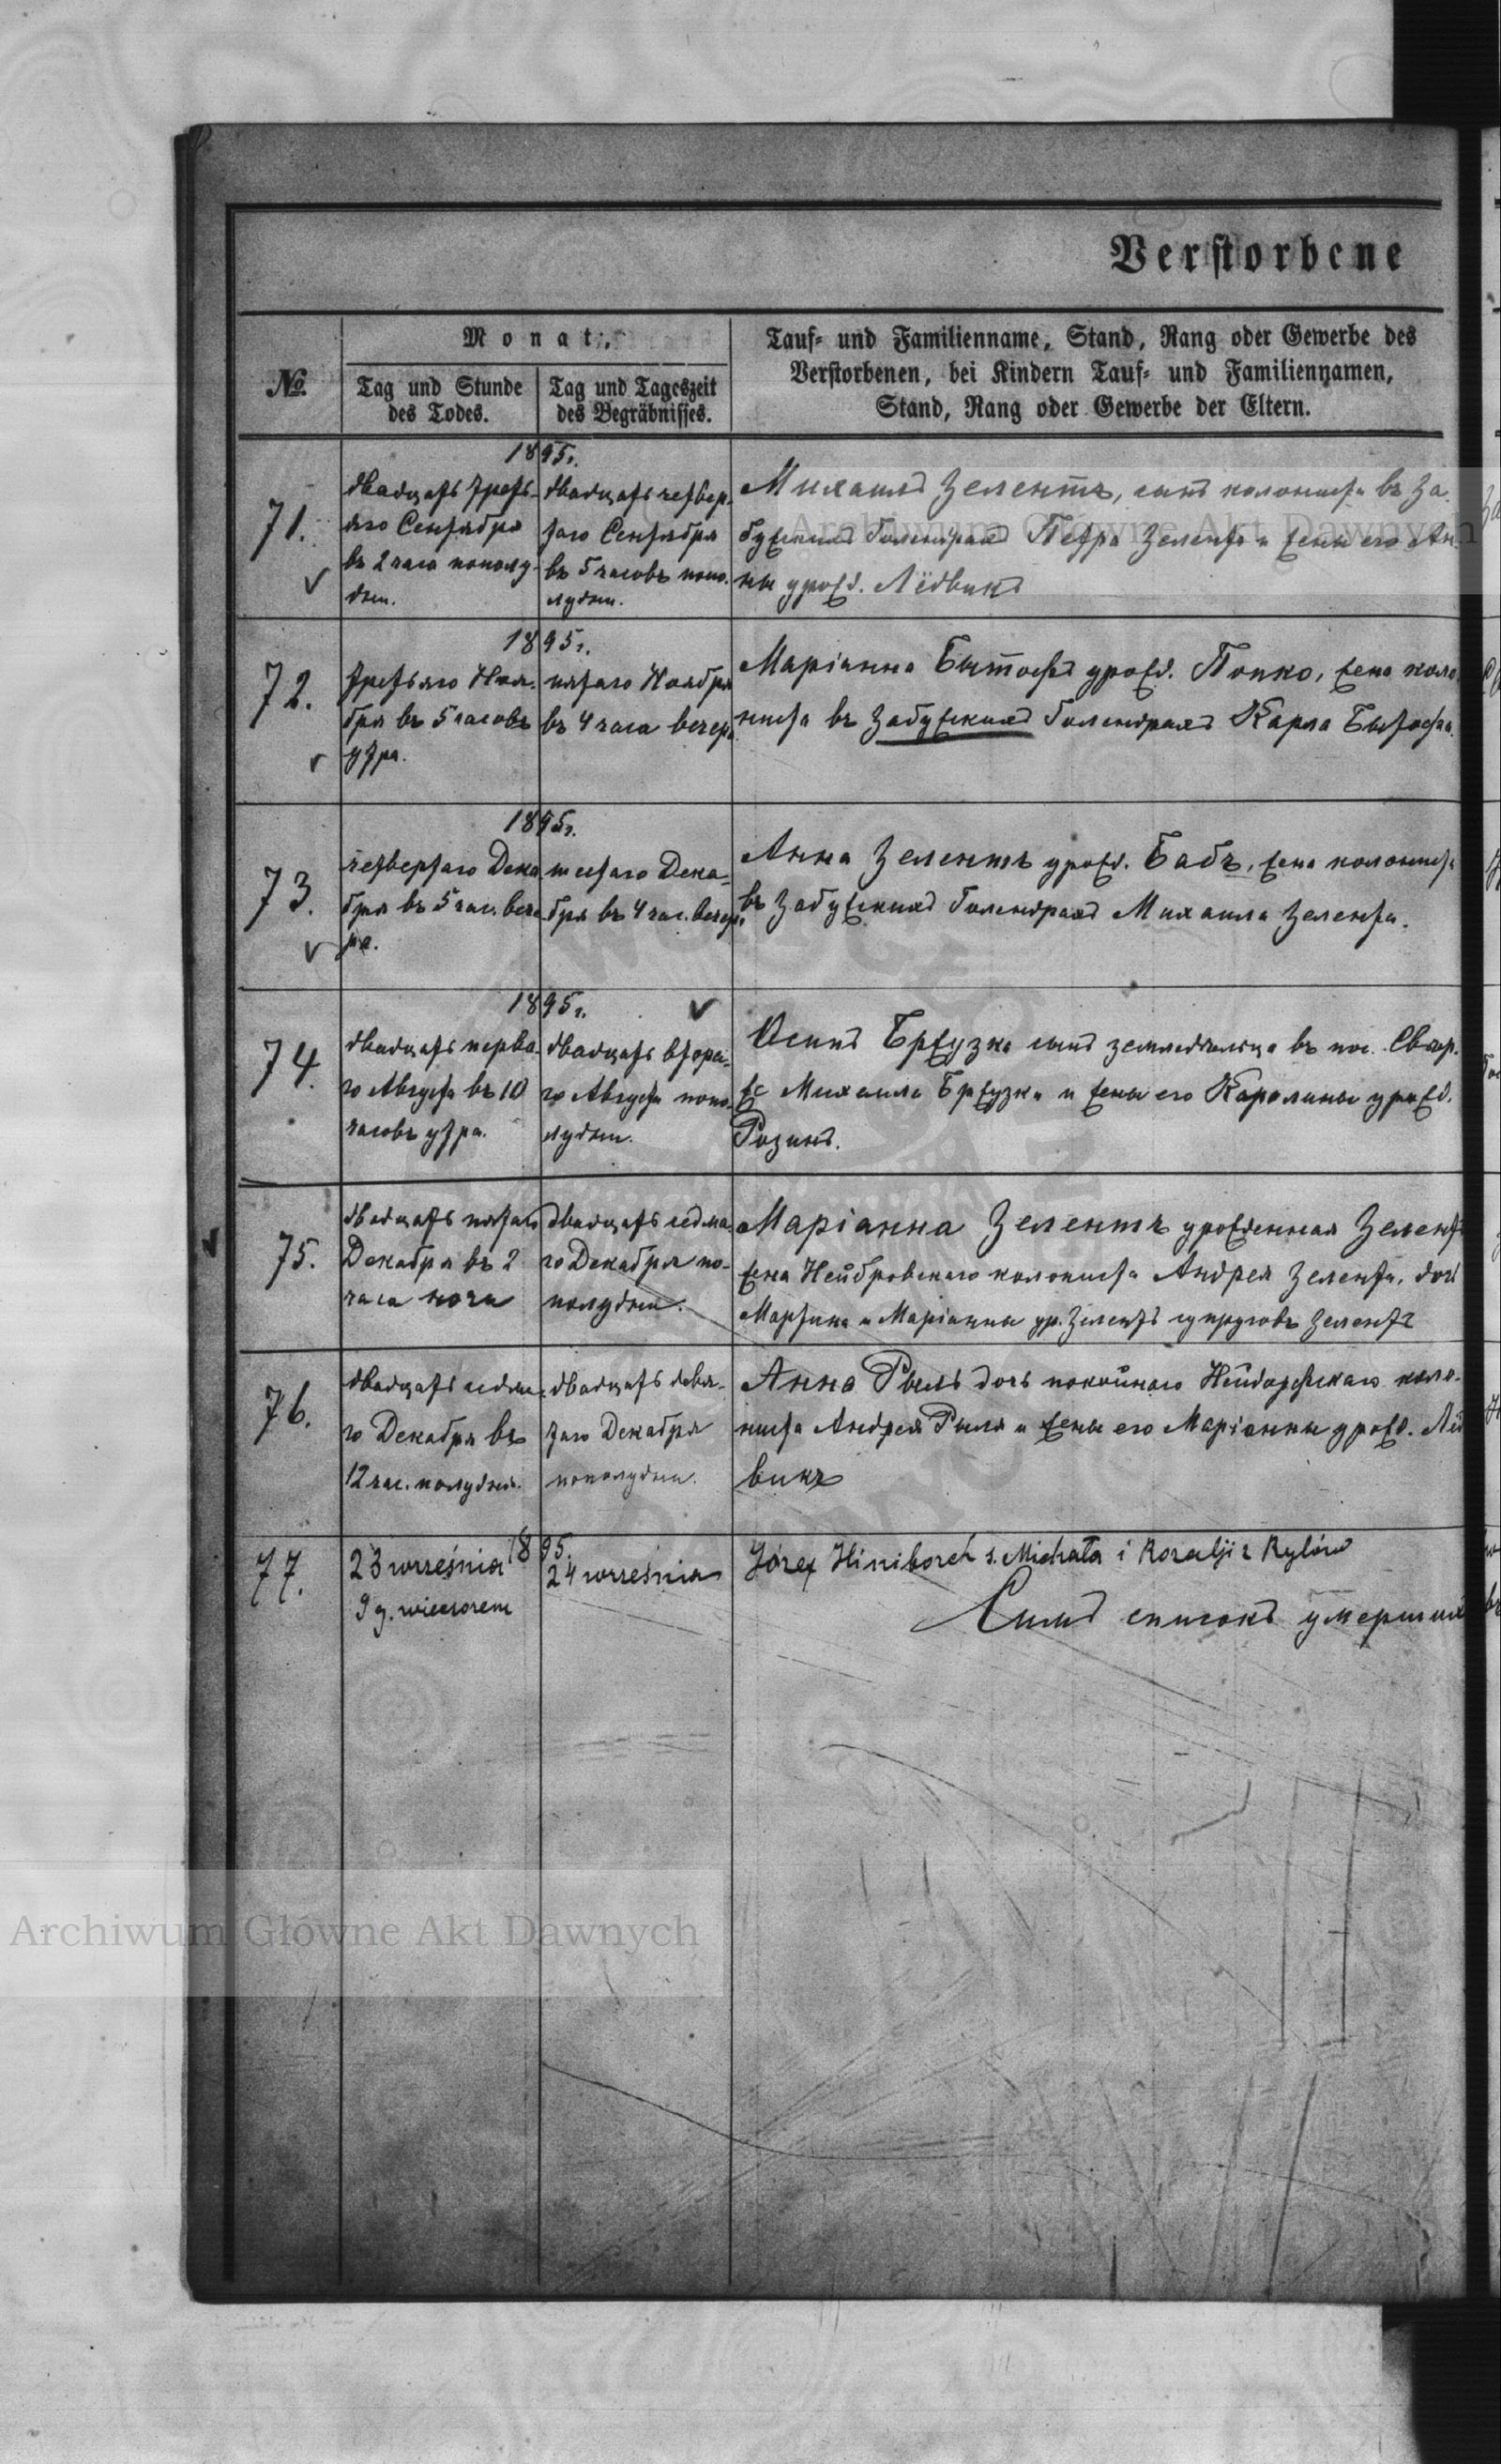 Verstorbene
№
Monat.
Tag und Stunde
des Todes.
Tag und Tageszeit
des Begräbnisses.
Tauf- und Familienname, Stand, Rang oder Gewerbe des
Verstorbenen, bei Kindern Tauf- und Familiennamen,
Stand, Rang oder Gewerbe der Eltern.
71.
1895г.
двадцать треть-
яго Сентября
въ 2 часа пополу-
дни.
двадцать четвер-
таго Сентября
въ 5 часовъ попо-
лудни.
Михаилъ Зелентъ, сынъ колониста въ За-
бужскихъ Голендрахъ Петра Зелента и жены его Ан-
ны урожд. Лїдвикъ
72.
1895г.
третьяго Ноя-
бря въ 5 часовъ
утра.
пятаго Ноября
въ 4 часа вечера
Маріанна Бытофъ урожд. Попко, жена коло-
ниста въ Забужскихъ Голендрахъ Карла Бытофа.
73.
1895г.
четвертаго Дека
бря въ 5 час. вече
ра.
шестаго Дека-
бря въ 4 час. вечера
Анна Зелентъ урожд. Бабъ, жена колониста
въ Забужскихъ Голендрахъ Михаила Зелента.
74.
1895г.
двадцать перва-
го Августа въ 10
часовъ утра.
двадцать втора-
го Августа попо-
лудни.
Осипъ Бржузка сынъ земледѣльца въ пос. Свор-
же Михаила Бржузки и жены его Каролины урожд.
Розинъ.
75.
двадцать пятаго
Декабря въ 2
часа ночи
двадцать седма-
го Декабря по-
полудни.
Маріанна Зелентъ урожденная Зелентъ
жена Нейбровскаго колониста Андрея Зелента, дочь
Мартина и Маріанны ур. Зелентъ супруговъ Зелентъ
76.
двадцать седма-
го Декабря въ
12 час. полудня.
двадцать девя-
таго Декабря
пополудни.
Анна Рыль дочь покойнаго Нейдорфскаго коло-
ниста Андрея Рыля и жены его Маріанны урожд. Лїд
викъ
77.
1895.
23 września
9 g. wieczorem
24 września
Józef Hiniborch s. Michała i Rozalji z Rylów
Симъ списокъ умершихъ
Archiwum Główne Akt Dawnych
Archiwum Główne Akt Dawnych